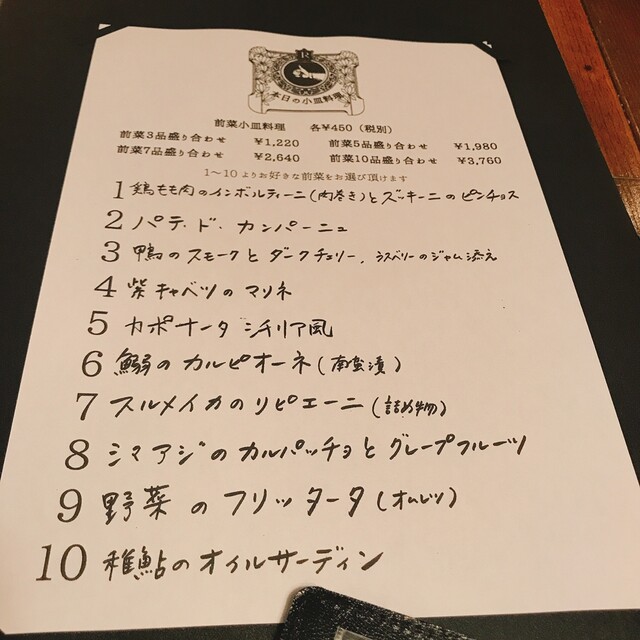 R
本日の小皿料理
前菜小皿料理 各¥450(税別)
前菜3品盛り合わせ ¥1,220 前菜5品盛り合わせ ¥1,980
前菜7品盛り合わせ ¥2,640 前菜10品盛り合わせ ¥3,760
1~10よりお好きな前菜をお選び頂けます
1 鶏もも肉のインボルティーニ(肉巻き)とズッキーニのピンチョス
2 パテ・ド・カンパーニュ
3 鴨のスモークとダークチェリー、ラズベリーのジャム添え
4 紫キャベツのマリネ
5 カポナータ シチリア風
6 鰯のカルピオーネ(南蛮漬)
7 スルメイカのリピエーニ(詰め物)
8 シマアジのカルパッチョとグレープフルーツ
9 野菜のフリッタータ(オムレツ)
10 稚鮎のオイルサーディン